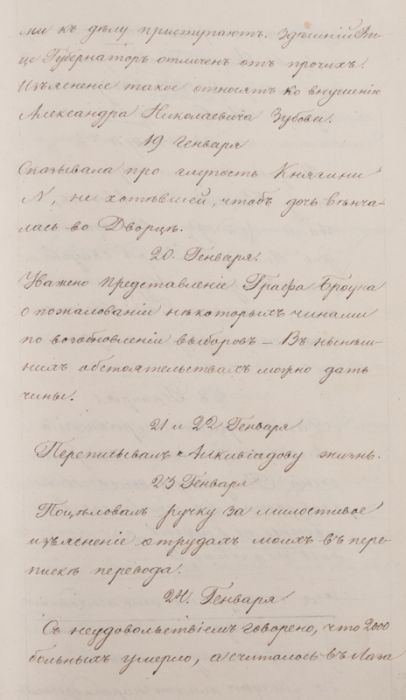 ми къ дѣлу приступаютъ. Здѣшній Ви-
це Губернаторъ отличенъ отъ прочихъ.
Изъясненіе такое относятъ ко внушенію
Александра Николаевича Зубова.
19 Генваря
Сказывала про глупость Княгини
N, не хотѣвшей, чтобъ дочь вѣнча-
лась во Дворцѣ.
20. Генваря.
Уважено представленіе Графа Броуна
о пожалованіи нѣкоторыхъ чинами
по возобновленіи выборовъ — Въ нынѣш-
нихъ обстоятельствахъ можно дать
чины.
21 и 22 Генваря
Переписывалъ Алкивіадову жизнь.
23 Генваря
Поцѣловалъ ручку за милостивое
изъясненіе о трудахъ моихъ въ пере-
пискѣ перевода.
24. Генваря
Съ неудовольствіемъ говорено, что 2000
больныхъ умерло, а считалось въ Лаза